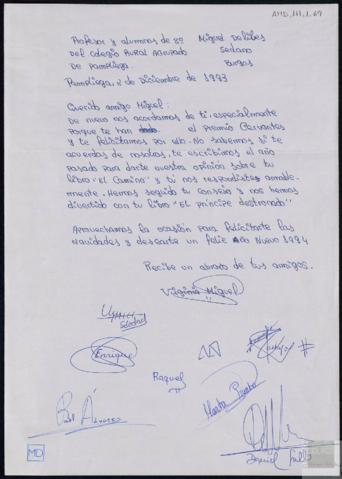 AMD, 111, 1, 69
Profesor y alumnos de 8º Miguel Delibes
del Colegio Rural Agrupado Sedano
de Pampliega. Burgos
Pampliega, 2 de Diciembre de 1993
Querido amigo Miguel:
De nuevo nos acordamos de ti, especialmente
porque te han dado el Premio Cervantes
y te felicitamos por ello. No sabemos si te
acuerdas de nosotros, te escribimos el año
pasado para darte nuestra opinión sobre tu
libro "El Camino" y tú nos respondiste amable-
mente. Hemos seguido tu consejo y nos hemos
divertido con tu libro "El príncipe destronado".
Aprovechamos la ocasión para felicitarte las
Navidades y desearte un feliz Año Nuevo 1994
Recibe un abrazo de tus amigos.
Virginia Miguel
Soledad
Enrique
Raquel
Marta
Álvarez
Daniel
MD